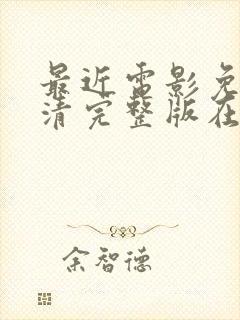 最近电影免
清完整版在
余智德